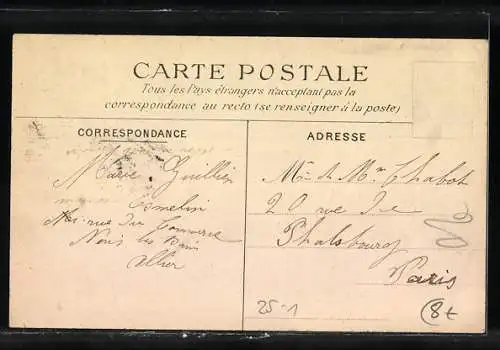 CARTE POSTALE
Tous les Pays étrangers n'acceptant pas la
correspondance au recto (se renseigner à la poste)
CORRESPONDANCE
ADRESSE
Marie Guillien
rue du Commerce
Néris les Bains
Allier
Mme & Mr Chabot
20 rue de
Phalsbourg
Paris
25-1
8t